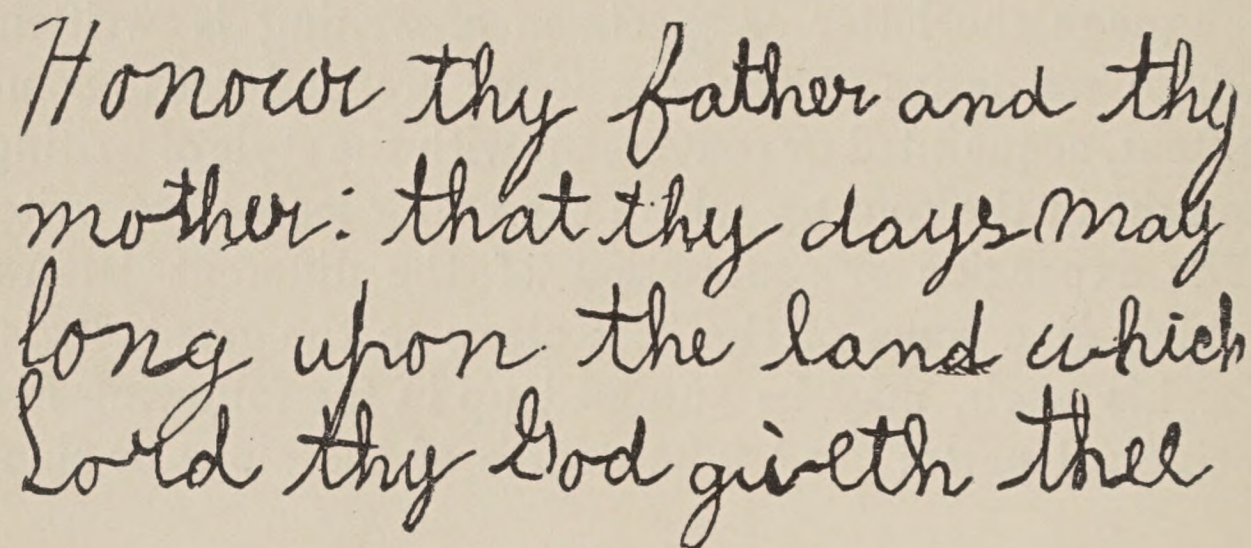 Honour thy father and thy
mother: that thy days may
long upon the land which
Lord thy God giveth thee